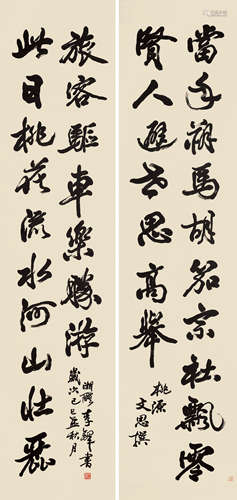 當年獬馬胡笳宗社飄零
賢人避世思高舉
桃源
文思撰
此日桃花流水河山壯麗
旅客驅車樂勝游
湖北李鐸書
歲次己巳孟秋月